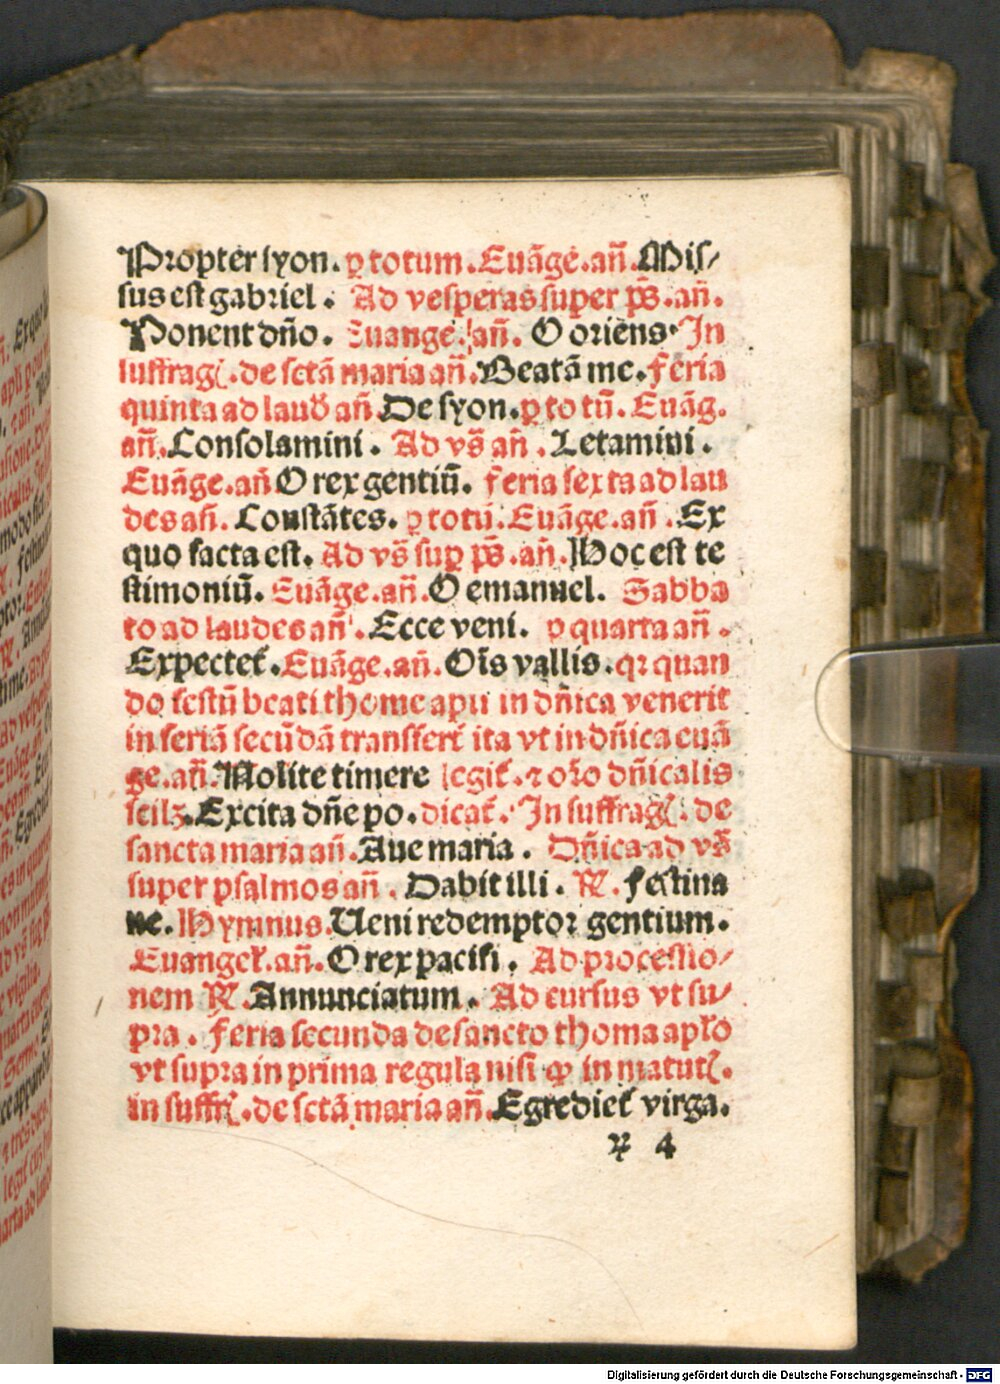 Propter syon. ꝑ totum. Euāge. añ. Mis/
sus est gabriel. Ad vesperas super pš. añ.
Ponent dño. Euange. añ. O oriēns. In
suffrag. de sctā maria añ. Beatā me. feria
quinta ad laud añ De syon. ꝑ totū. Euāg.
añ. Consolamini. Ad vš añ. Letamini.
Euāge. añ O rex gentiū. feria sexta ad lau
des añ. Constātes. ꝑ totū. Euāge. añ. Ex
quo facta est. Ad vš suꝑ pš. añ. Hoc est te
stimoniū. Euāge. añ. O emanuel. Sabba
to ad laudes añ. Ecce veni. ꝑ quarta añ.
Expectet. Euāge. añ. Oīs vallis. qꝛ quan
do festū beati thome apli in dñica venerit
in feriā secūdā transfert ita vt in dñica euā
ge. añ. Nolite timere legit. ⁊ oro dñicalis
scilꝫ. Excita dñe po. dicat. In suffrag. de
sancta maria añ. Aue maria. Dñica ad vš
super psalmos añ. Dabit illi. ℟. festina
ne. Hymnus. Ueni redemptor gentium.
Euangel. añ. O rex pacifi. Ad processio/
nem ℟. Annunciatum. Ad cursus vt su/
pra. feria secunda de sancto thoma aplo
vt supra in prima regula nisi ꝙ in matut.
in suffr. de sctā maria añ. Egrediet virga.
4
Digitalisierung gefördert durch die Deutsche Forschungsgemeinschaft - DFG